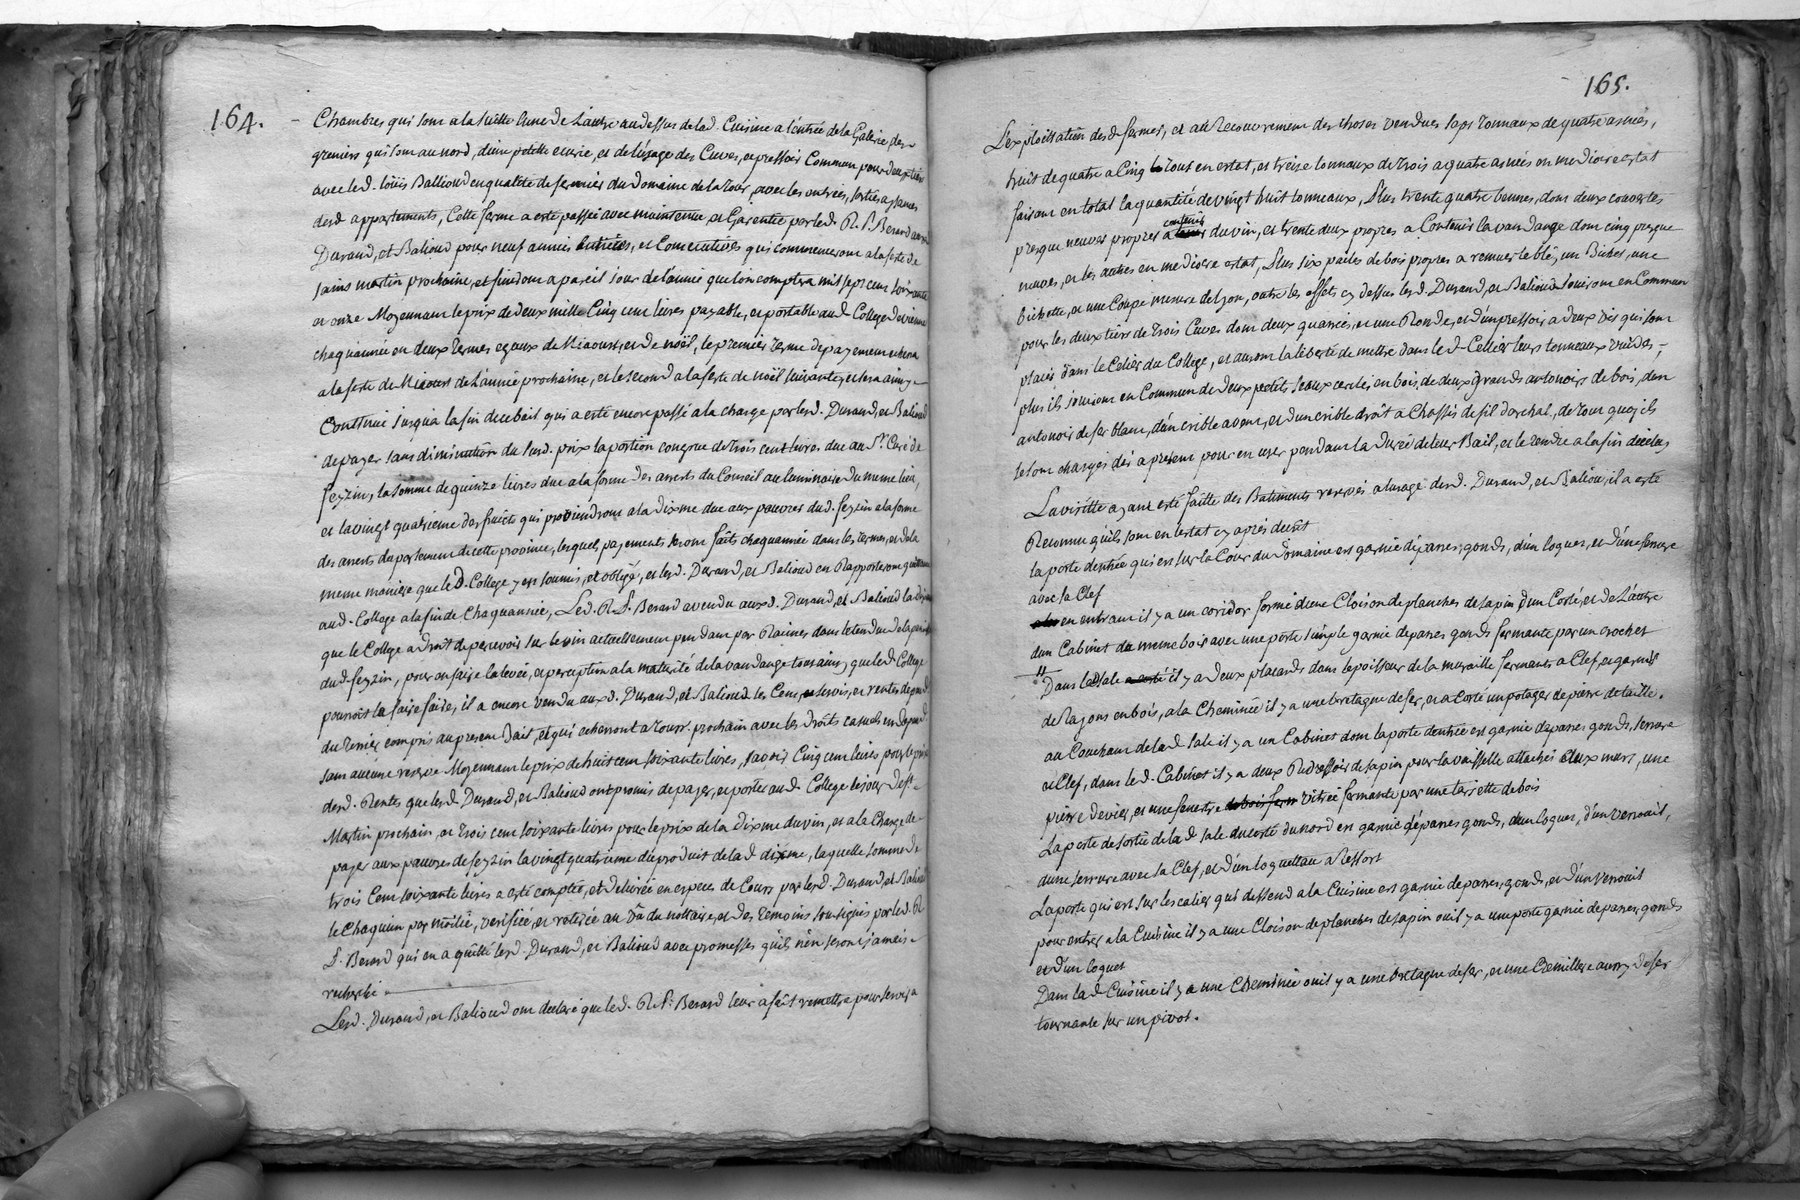 164.
Chambres qui sont a la suitte l'une de L'autre au dessus de lad. Cuisine a l'entrée de la Galerie, des
greniers qui sont au nord, d'une petitte ecurie, et de l'usage des Cuves, et pressoir Commun pour deux tiers
avec led. loüis Ballioud en qualité de fermier du domaine de la Tour, avec les entrées, sorties, aysances
desd appartements, Cette ferme a esté passée avec maintenue et Garentie par led. R. P. Berard auxd
Durand, et Balioud pour neuf années entieres, et Consecutives qui commenceront a la feste de
saint martin prochaine, et finiront a pareil jour de l'année que l'on comptera mil sept cent soixante
et onze Moyennant le prix de deux mille Cinq cent livres payable, et portable aud College de vienne
chaqu'année en deux termes egaux de Miaoust, et de noël, le premier terme de payement echera
a la feste de Miaoust de L'année prochaine, et le second a la feste de noël suivante, et sera ainsy
Continué jusqu'a la fin du ce bail qui a esté encore passé a la charge par lesd. Durand, et Balioud
de payer sans diminution du susd. prix la portion congrue de Trois cent livres due au Sr. Curé de
feyzin, la somme de quinze livres due a la forme des arrests du Conseil au luminaire du meme lieu,
et la vingt quatrieme des fruits qui proviendront a la dixme due aux pauvres dud. feyzin a la forme
des arrests du parlement de cette province, lesquels payements seront faits chaquannée dans les termes, et de la
meme maniere que le D. College y est soumis, et obligé, et lesd. Durand, et Balioud en Rapporteront quittance
aud. College a la fin de Chaquannée, Led. R. P. Berard a vendu auxd. Durand, et Balioud la dixme
que le College a droit de percevoir sur le vin actuellement pendant par Racines dans l'etendue de la paroisse
dud feyzin, pour en faire la levée, et perception a la maturité de la vandange tout ainsy que led College
pourroit la faire faire, il a encore vendu auxd. Durand, et Balioud les Cens, servis, et rentes depend.
du terrier compris au present Bait, et qui echerront a Touss. prochain avec les droits casuels en depend.
sans aucune reserve Moyennant le prix de huit cent soixante livres, savoir Cinq cent livres pour le prix
desd. Rentes que lesd. Durand, et Balioud ont promis de payer, et porter aud. College le jour de St.
Martin prochain, et Trois cent soixante livres pour le prix de la Dixme du vin, et a la Charge de
payer aux pauvres de feyzin la vingt quatrieme du produit de lad dixme, laquelle somme de
trois Cent soixante livres a esté comptée, et delivrée en especes de Cours par lesd. Durand, et Balioud
le Chaquun par moitié, verifiée, et retirée au vû du nottaire, et des temoins soussignés par led. R.
P. Berard qui en a quitté lesd. Durand, et Balioud avec promesses qu'ils n'en seront jameis
recherché
Lesd. Durand, et Balioud ont declaré que led. R. P. Berard leur a fait remettre pour servir a
165.
L'exploitation desd fermes, et au Recouvrement des choses vendues sept Tonneaux de quatre asnées,
huit de quatre a Cinq le tout en estat, et treize tonneaux de Trois a quatre asnées en mediocre estat
faisant en total la quantité de vingt huit tonneaux, Plus trente quatre bennes, dont deux couvertes
presque neuves propres a contenir du vin, et trente deux propres a Contenir la vandange dont cinq presque
neuves, et les autres en mediocre estat, Plus six pailes de bois propres a remuer le blé, un Bichet, une
bichette, et une Coupe mesure de Lyon, outre les effets cy dessus lesd. Durand, et Balioud Jouiront en Commun
pour les deux tiers de Trois Cuves dont deux quarrées, et une Ronde, et d'un pressoir a deux vis qui sont
placés dans le Celier du College, et auront la liberté de mettre dans led. Cellier leurs tonneaux vuides;
plus ils jouiront en Commun de deux petits seaux cerclés, en bois, de deux grands antonoirs de bois, d'un
antonoir de fer blanc, d'un crible a vent, et d'un crible droit a Chassis de fil d'archal, de tout quoy ils
se sont chargés dés a present pour en user pendant la Durée de leur Bail, et le rendre a la fin d'icelui
La visitte ayant esté faitte des Batiments reservés a l'usage desd. Durand, et Balioud, il a esté
Reconnu qu'ils sont en l'estat cy aprés decrit
la porte d'entrée qui est sur la Cour du Domaine est garnie de panes, gonds, d'un loquet, et d'une serrure
avec sa Clef
en entrant il y a un coridor formé d'une Cloison de planches de sapin d'un Costé, et de L'autre
d'un Cabinet du meme bois avec une porte simple garnie de panes gonds fermante par un crochet
Dans lad sale il y a deux placards dans le poisseur de la muraille ferments a Clef, et garnis
de Rayons en bois, a la Cheminée il y a une bretagne de fer, et a costé un potager de pierre de taille.
au Couchant de lad sale il y a un Cabinet dont la porte d'entrée est garnie de panes gonds, serrure
et Clef, dans led. Cabinet il y a deux Redressoirs de sapin pour la vaisselle attachés aux murs, une
pierre d'evier, et une fenestre vitrée fermante par une targette de bois
La porte de sortie de lad sale du costé du nord est garnie de panes gonds, d'un loquet, d'un verrouil,
d'une serrure avec la Clef, et d'un loquetteau a Ressort
La porte qui est sur l'escalier qui dessend a la Cuisine est garnie de panes, gonds, et d'un verrouil
pour entrer a la Cuisine il y a une Cloison de planches de sapin ou il y a une porte garnie de panes, gonds
et d'un loquet
Dans lad Cuisine il y a une Cheminée ou il y a une bretagne de fer, et une Cremillere aussy de fer
tournante sur un pivot.